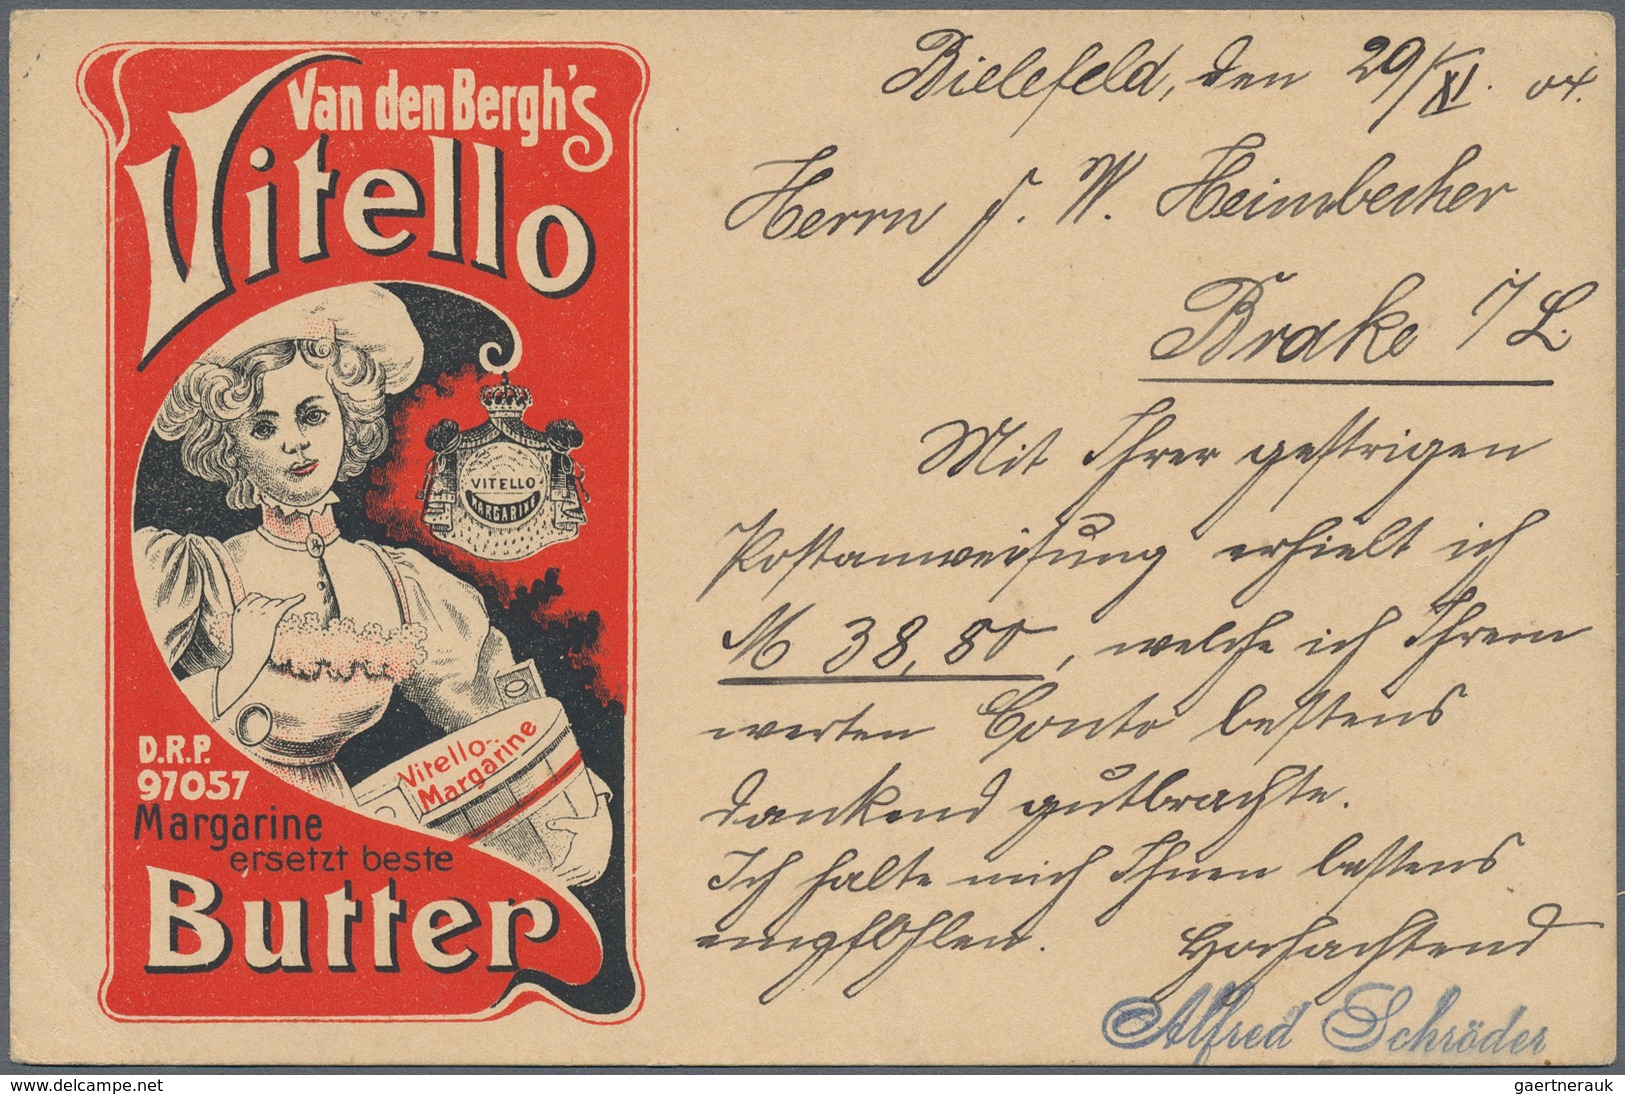 Van den Bergh's
Vitello
VITELLO
MARGARINE
Vitello-
Margarine
D.R.P.
97057
Margarine
ersetzt beste
Butter
Bielefeld, den 29/XI. 04.
Herrn F. W. Heimbecher
Brake i/L.
Mit Ihrer gestrigen
Postanweisung erhielt ich
M 38,80, welche ich Ihrem
werten Conto bestens
dankend gutbrachte.
Ich halte mich Ihnen bestens
empfohlen. Hochachtend
Alfred Schröder
© delcampe.net
gaertnerauk